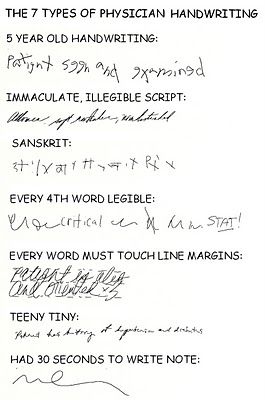 THE 7 TYPES OF PHYSICIAN HANDWRITING
5 YEAR OLD HANDWRITING:
Patient seen and examined
IMMACULATE, ILLEGIBLE SCRIPT:
SANSKRIT:
EVERY 4TH WORD LEGIBLE:
critical STAT!
EVERY WORD MUST TOUCH LINE MARGINS:
Patient is alert
and oriented x3
TEENY TINY:
Patient has history of hypertension and diabetes
HAD 30 SECONDS TO WRITE NOTE: